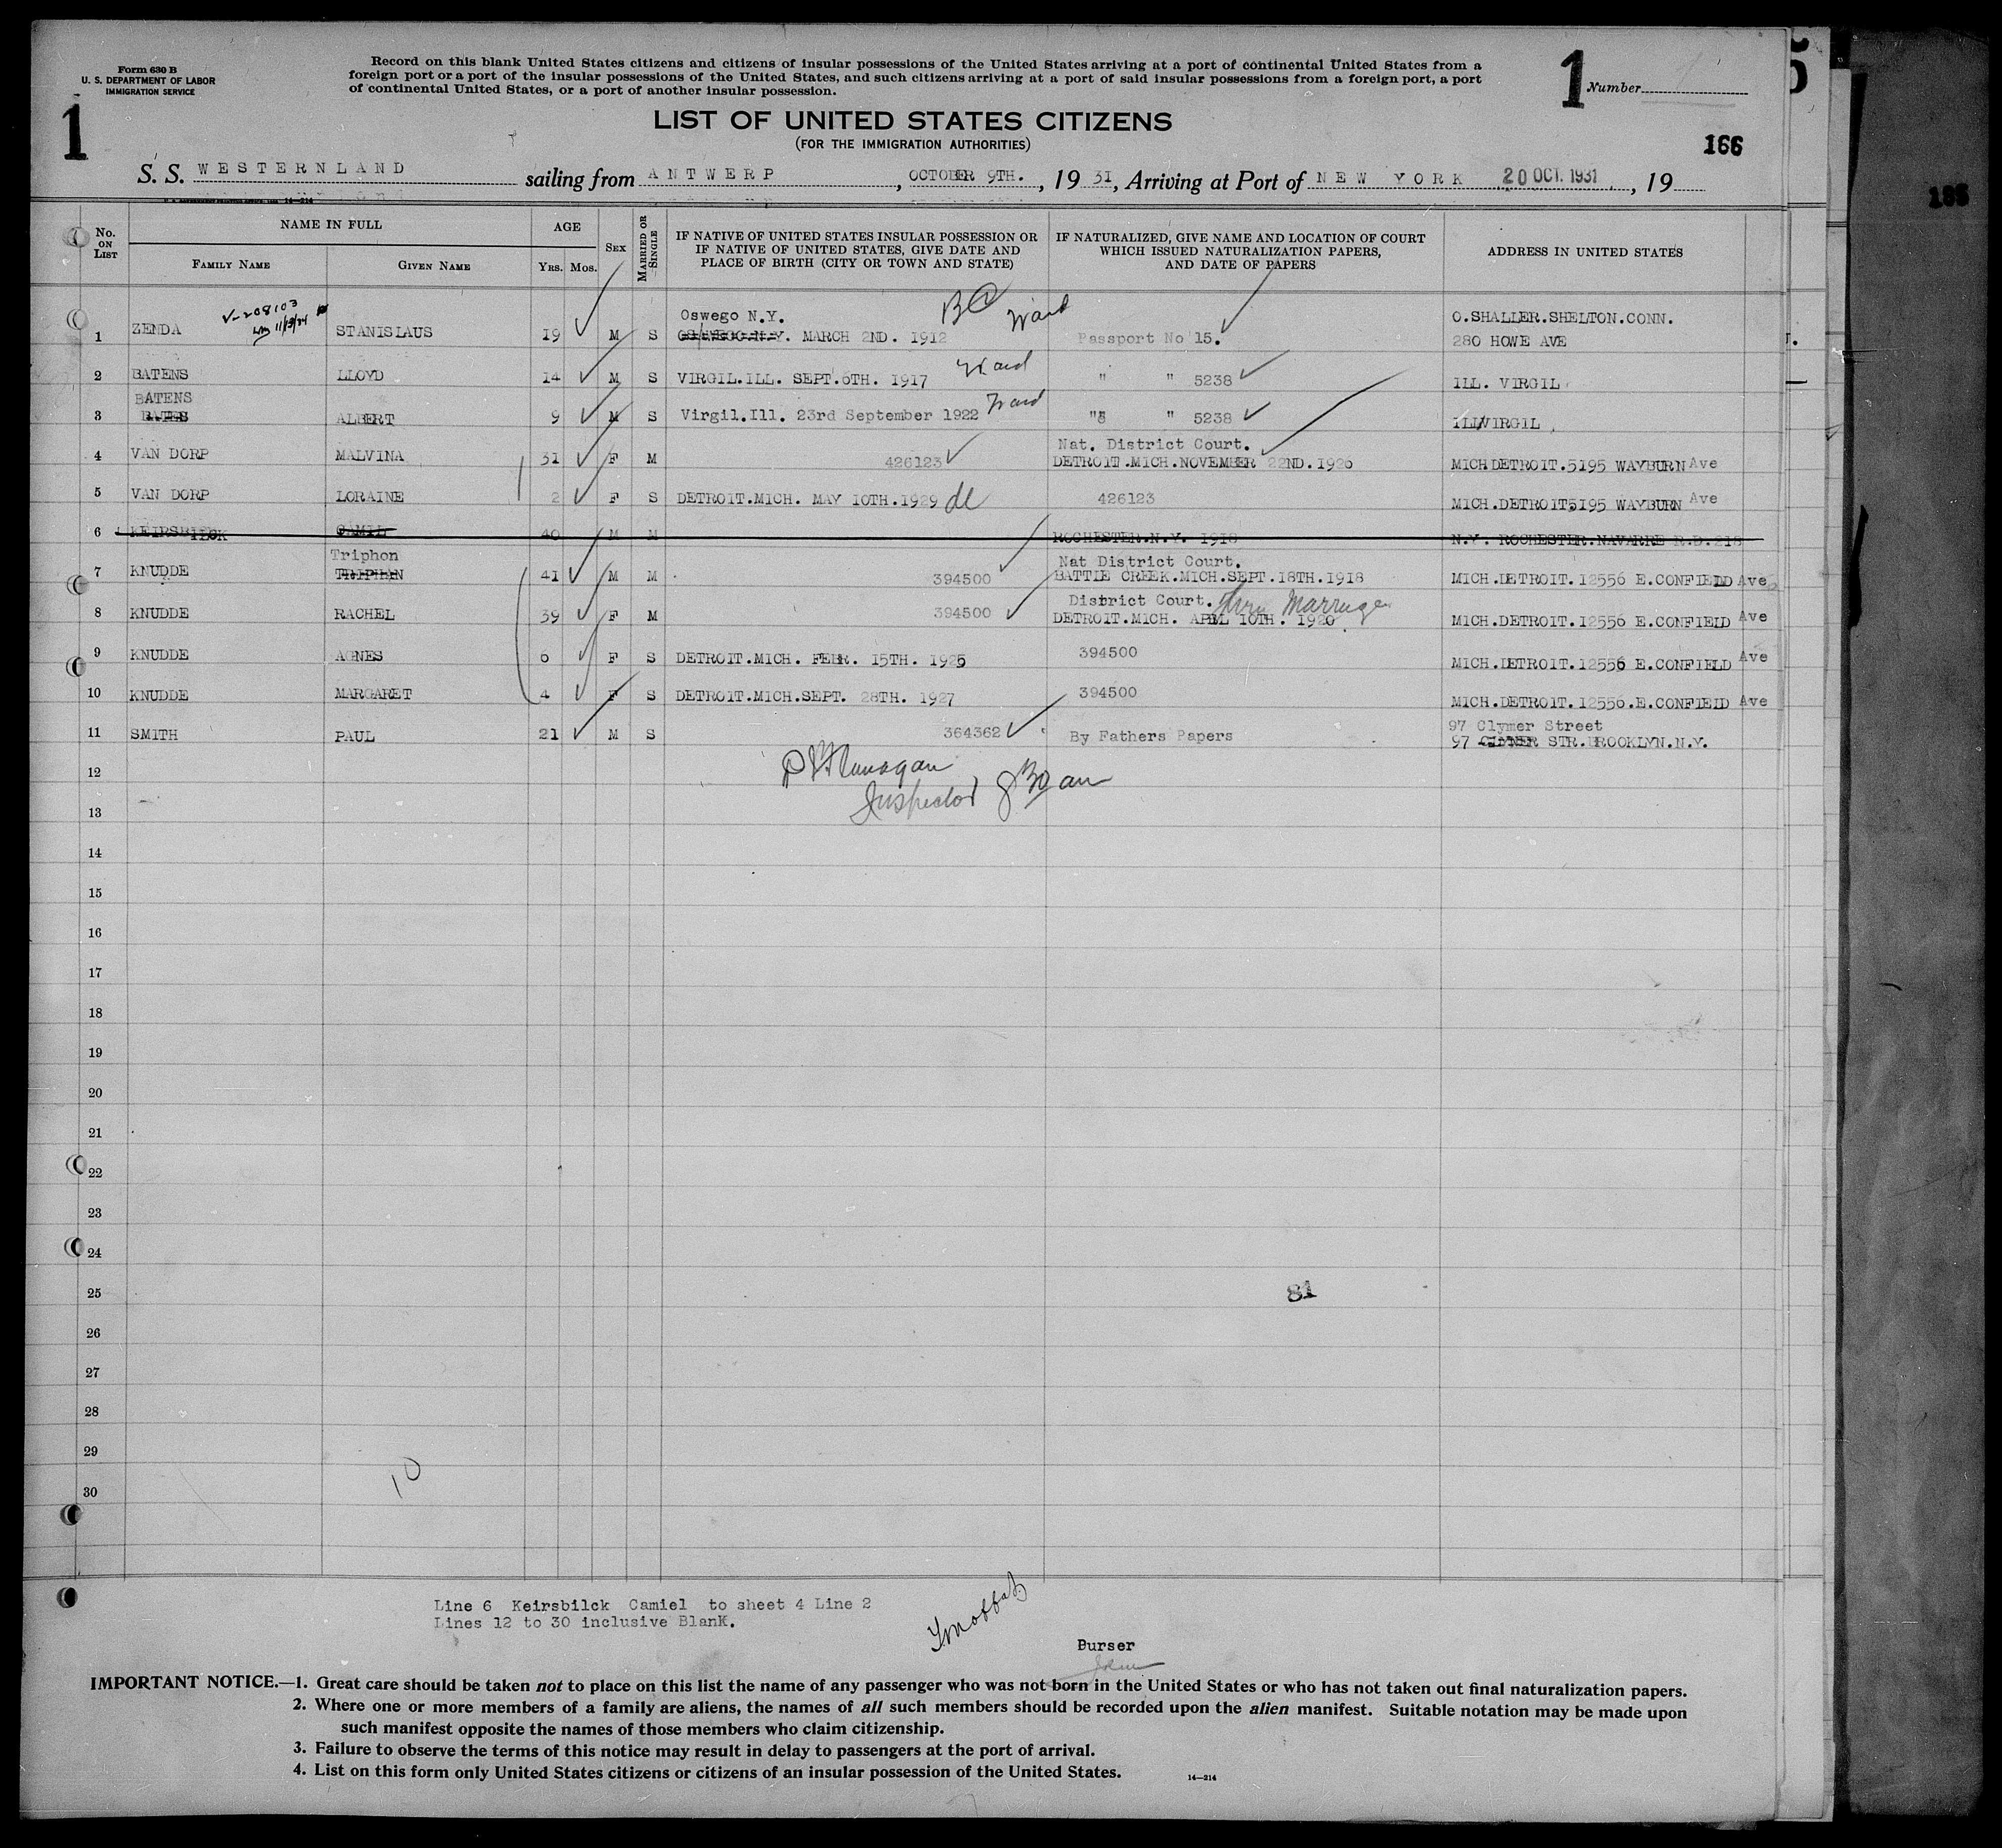 Form 630 B
U. S. DEPARTMENT OF LABOR
IMMIGRATION SERVICE
Record on this blank United States citizens and citizens of insular possessions of the United States arriving at a port of continental United States from a
foreign port or a port of the insular possessions of the United States, and such citizens arriving at a port of said insular possessions from a foreign port, a port
of continental United States, or a port of another insular possession.
1
1 Number
LIST OF UNITED STATES CITIZENS
(FOR THE IMMIGRATION AUTHORITIES)
166
S. S. WESTERNLAND sailing from ANTWERP, OCTOBER 9TH., 19 31, Arriving at Port of NEW YORK 20 OCT. 1931, 19
No. ON LIST
NAME IN FULL
FAMILY NAME
GIVEN NAME
AGE
YRS. MOS.
SEX
MARRIED OR SINGLE
IF NATIVE OF UNITED STATES INSULAR POSSESSION OR
IF NATIVE OF UNITED STATES, GIVE DATE AND
PLACE OF BIRTH (CITY OR TOWN AND STATE)
IF NATURALIZED, GIVE NAME AND LOCATION OF COURT
WHICH ISSUED NATURALIZATION PAPERS,
AND DATE OF PAPERS
ADDRESS IN UNITED STATES
V-208103
11/13/34
Oswego N.Y.
O.SHALLER.SHELTON.CONN.
1 ZENDA STANISLAUS 19 M S MARCH 2ND. 1912 Ward Passport No 15. 280 HOWE AVE
2 BATENS LLOYD 14 M S VIRGIL.ILL. SEPT.6TH. 1917 Ward " " 5238 ILL. VIRGIL
BATENS
3 BATES ALBERT 9 M S Virgil.Ill. 23rd September 1922 Ward " " 5238 ILL VIRGIL
Nat. District Court.
4 VAN DORP MALVINA 31 F M 426123 DETROIT.MICH.NOVEMBER 22ND.1926 MICH DETROIT.5195 WAYBURN Ave
5 VAN DORP LORAINE 2 F S DETROIT.MICH. MAY 10TH.1929 426123 MICH.DETROIT 5195 WAYBURN Ave
6 KEIRSBILCK CAMIL 40 M M ROCHESTER.N.Y. 1918 N.Y. ROCHESTER.NAVARRE R.D.218
Triphon
Nat District Court.
7 KNUDDE TRIPHAN 41 M M 394500 BATTLE CREEK.MICH.SEPT.18TH.1918 MICH.DETROIT.12556 E.CONFIELD Ave
District Court. Thru Marriage
8 KNUDDE RACHEL 39 F M 394500 DETROIT.MICH. APRL 10TH. 1920 MICH.DETROIT.12556 E.CONFIELD Ave
9 KNUDDE AGNES 6 F S DETROIT.MICH. FEBR. 15TH. 1925 394500 MICH.DETROIT.12556 E.CONFIELD Ave
10 KNUDDE MARGARET 4 F S DETROIT.MICH.SEPT. 28TH. 1927 394500 MICH.DETROIT.12556.E.CONFIELD Ave
97 Clymer Street
11 SMITH PAUL 21 M S 364362 By Fathers Papers 97 STR.BROOKLYN.N.Y.
12
Flanagan
Inspector
13
14
15
16
17
18
19
20
21
22
23
24
25
81
26
27
28
29
10
30
Line 6 Keirsbilck Camiel to sheet 4 Line 2
Lines 12 to 30 inclusive Blank.
Purser
IMPORTANT NOTICE.—1. Great care should be taken not to place on this list the name of any passenger who was not born in the United States or who has not taken out final naturalization papers.
2. Where one or more members of a family are aliens, the names of all such members should be recorded upon the alien manifest. Suitable notation may be made upon
such manifest opposite the names of those members who claim citizenship.
3. Failure to observe the terms of this notice may result in delay to passengers at the port of arrival.
4. List on this form only United States citizens or citizens of an insular possession of the United States.
14—214